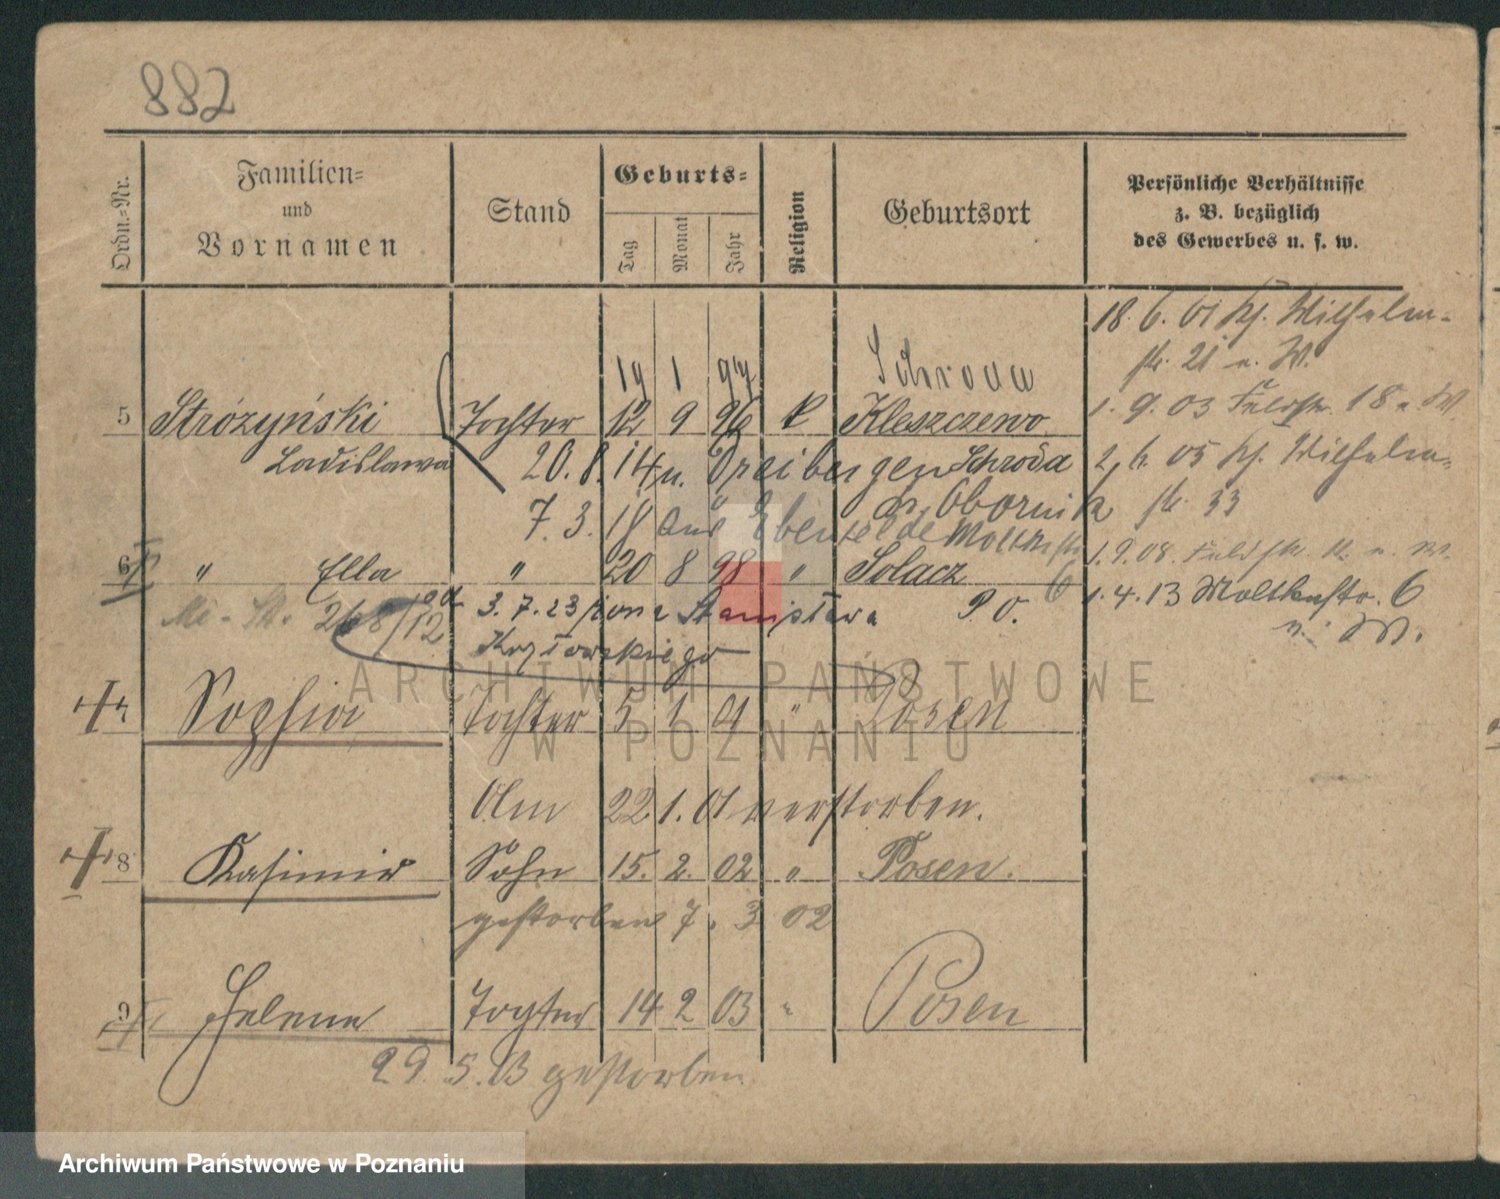 882
Ordn.-Nr.
Familien- und Vornamen
Stand
Geburts-
Tag Monat Jahr
Religion
Geburtsort
Persönliche Verhältnisse
z. B. bezüglich
des Gewerbes u. s. w.
18. 6. 01 Kl. Wilhelm-
str. 21 n. W.
19 1 97 Schroda
5 Stróżyński Tochter 12 9 96 k Kleszczewo
1. 9. 03 Feldstr. 18 n. W.
Ladislawa 20. 8. 14 n. Dreibergen Schroda
2. 6. 05 Kl. Wilhelm-
Obornik
str. 33
7. 3. 18 aus Ebenfelde Moltkestr
6
1. 9. 08. Feldstr. n. W.
6 " Ella " 20 8 98 " Solacz
1. 4. 13 Moltkestr. 6
n. W.
268/12 3. 7. 23 żona Stanisława
Kozłowskiego
7 Sophia Tochter 5 1 01 " Posen
Am 22. 1. 01 verstorben.
8 Kasimir Sohn 15. 2. 02 " Posen.
gestorben 7. 3 02
9 Helene Tochter 14 2 03 " Posen
29. 5. 13 gestorben
ARCHIWUM PAŃSTWOWE
W POZNANIU
Archiwum Państwowe w Poznaniu